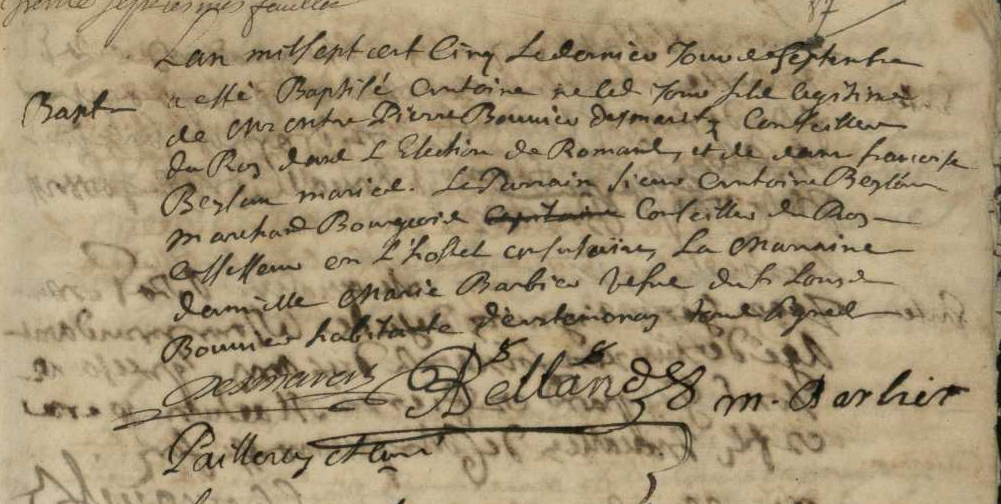 trente septiesme feuillet
87
Lan mil sept cent Cinq Le dernier Jour de septembre
Bapt a esté Baptisé Antoine né led Jour fils legitime
de Mr Pierre Bouvier desmarets Conseiller
du Roy dans L Election de Romans, et de dame francoise
Beylan mariés. Le Parrain sieur Antoine Beylan
marchand Bourgeois Conseiller du Roy
assesseur en L'hostel consulaire, La Marraine
damlle Marie Barbier vefve du Sr Louis
Bouvier habitante tous signés
desmarets Bellands m. Barbier
Pailleray